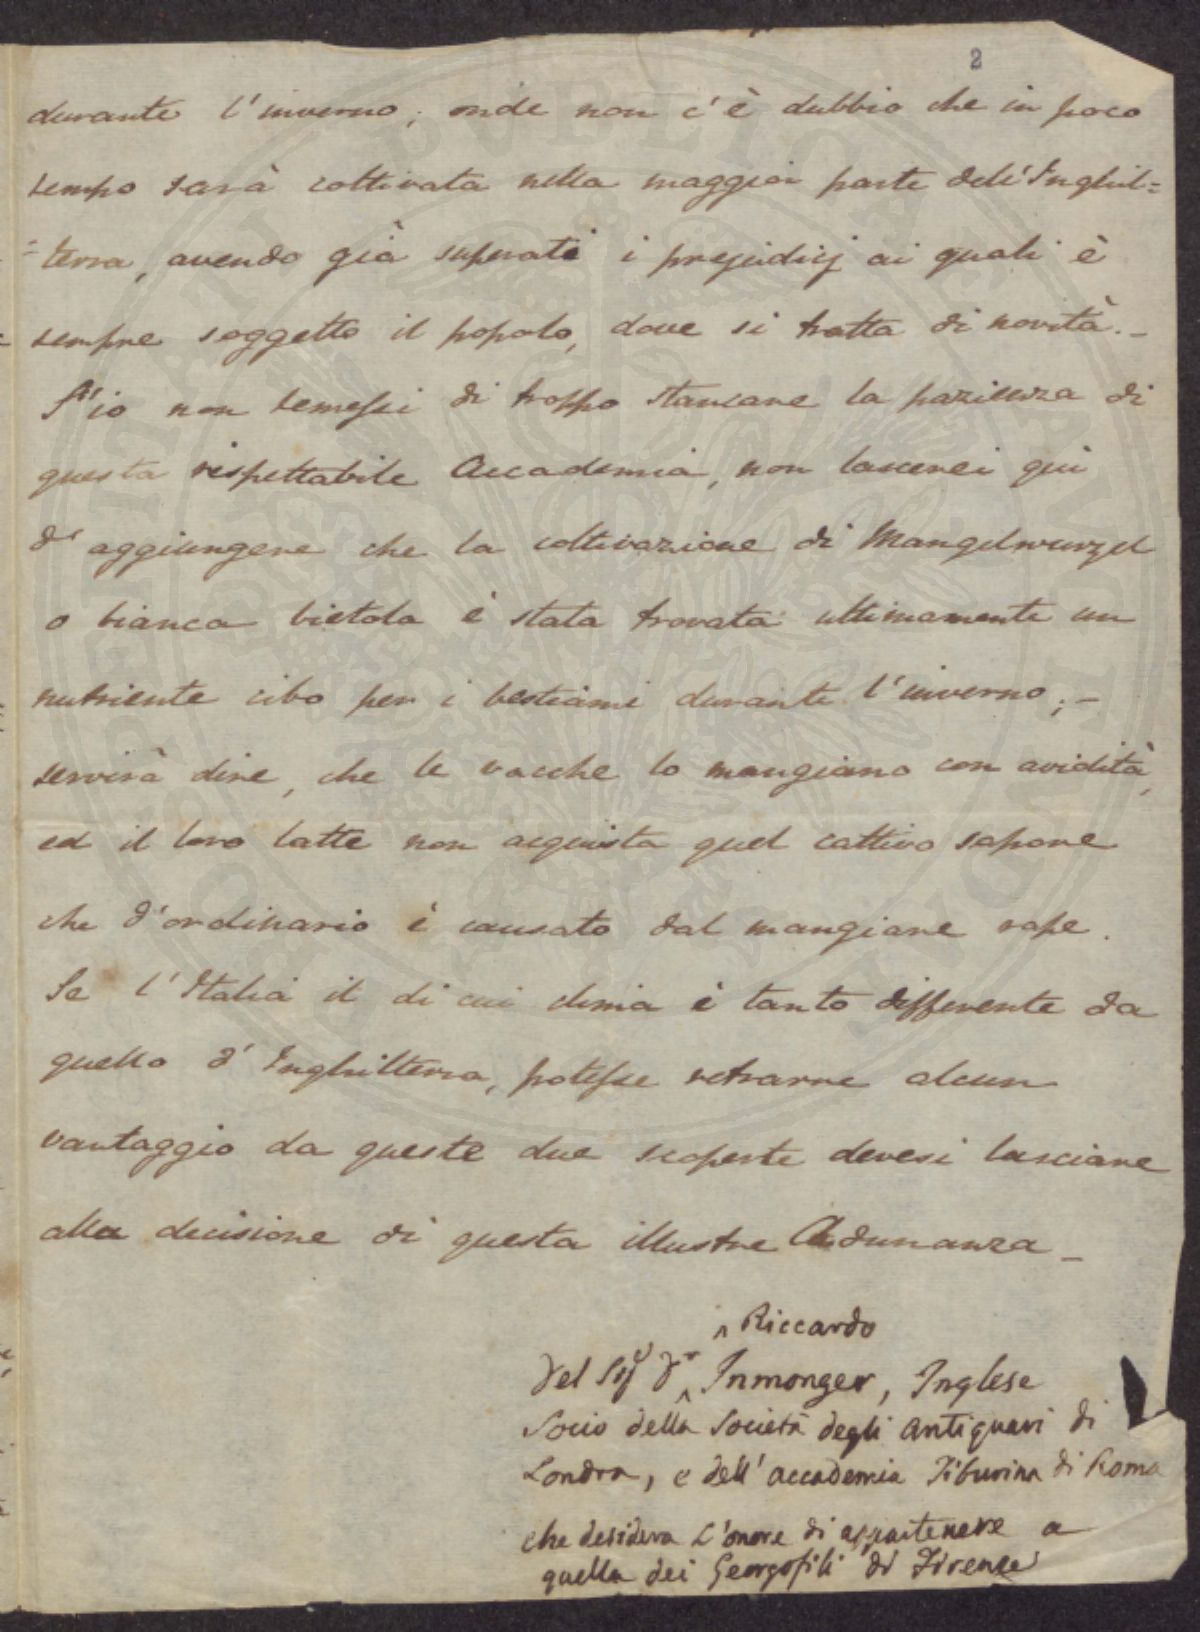 2
durante l'inverno; onde non c'è dubbio che in poco
tempo sarà coltivata nella maggior parte dell'Inghil=
=terra, avendo già superati i prejudicj ai quali è
sempre soggetto il popolo, dove si tratta di novità._
S'io non temessi di troppo stancare la pazienza di
questa rispettabile Accademia, non lascerei qui
d'aggiungere che la coltivazione di Mangelwurzel
o bianca bietola è stata trovata ultimamente un
nutriente cibo per i bestiami durante l'inverno;_
servirà dire, che le vacche lo mangiano con avidità,
ed il loro latte non acquista quel cattivo sapore
che d'ordinario è causato dal mangiare rape.
Se l'Italia il di cui clima è tanto differente da
quello d'Inghilterra, potesse retrarne alcun
vantaggio da queste due scoperte devesi lasciare
alla decisione di questa illustre Adunanza_
^ Riccardo
Del Sigr Dr ^ Inmonger, Inglese
Socio della Società degli Antiquari di
Londra, e dell'Accademia Tiburina di Roma
che desidera l'onore di appartenere a
quella dei Georgofili di Firenze